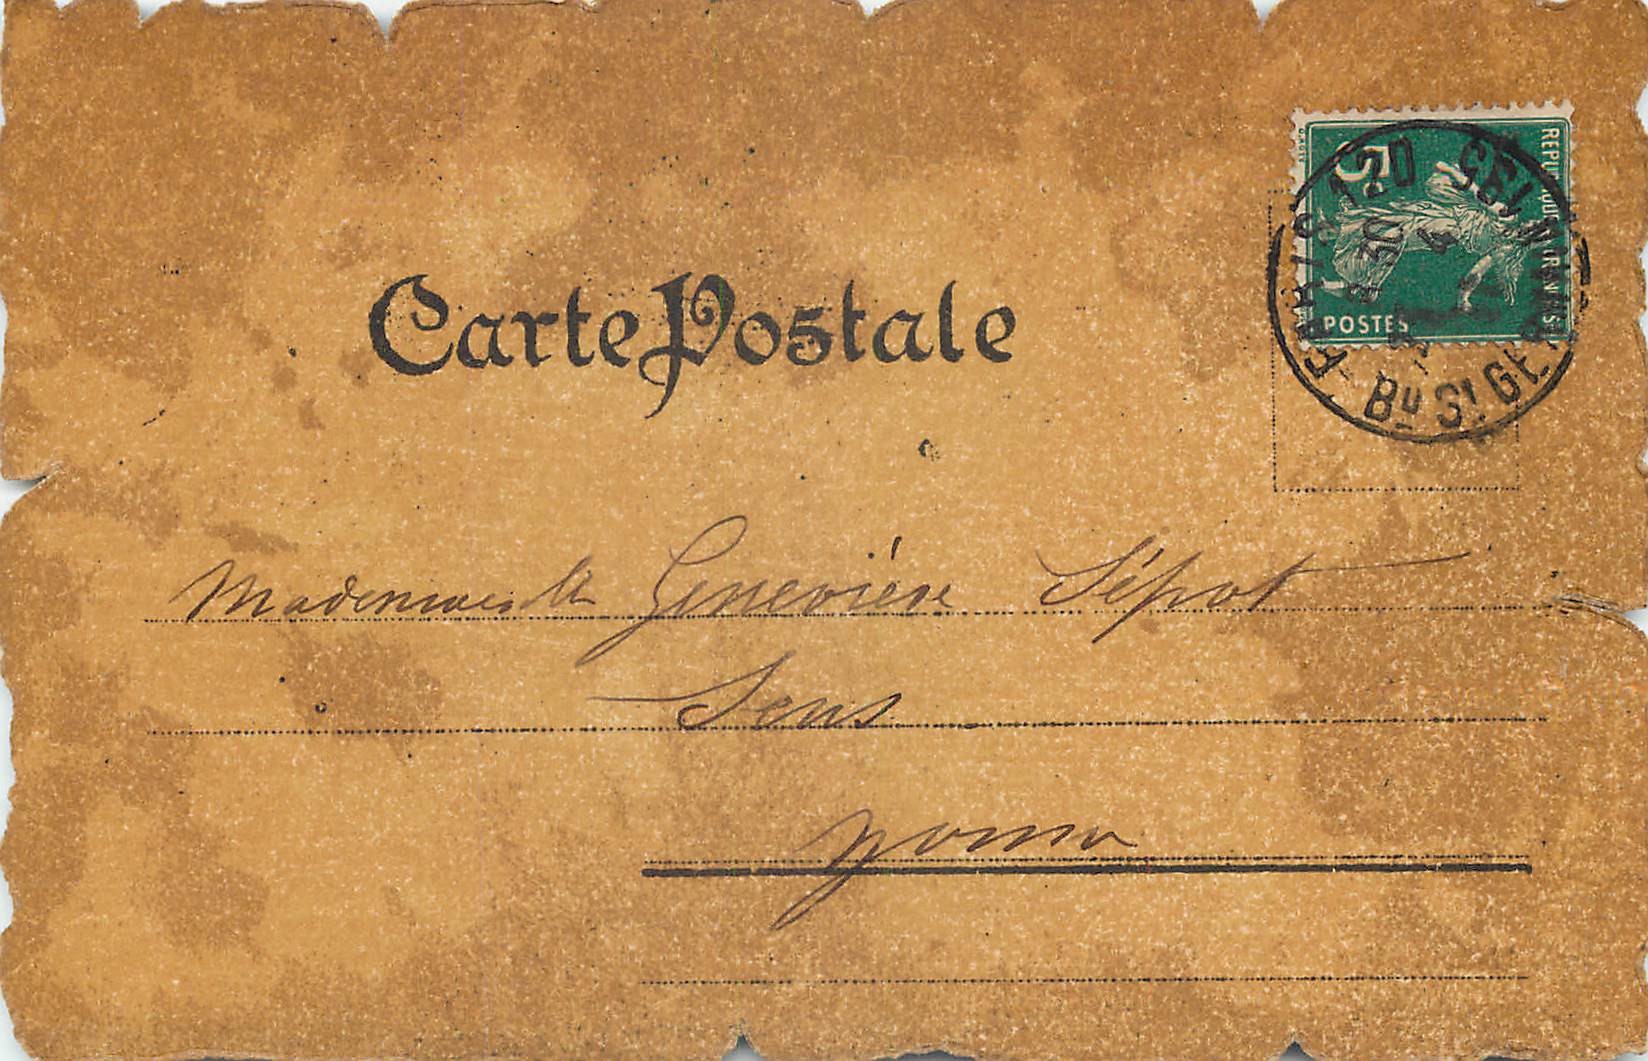 Carte Postale
REPUBLIQUE FRANÇAISE
5
POSTES
PARIS 120
Bd St GERMAIN
Mademoiselle Geneviève Sépot
Sens
Yonne